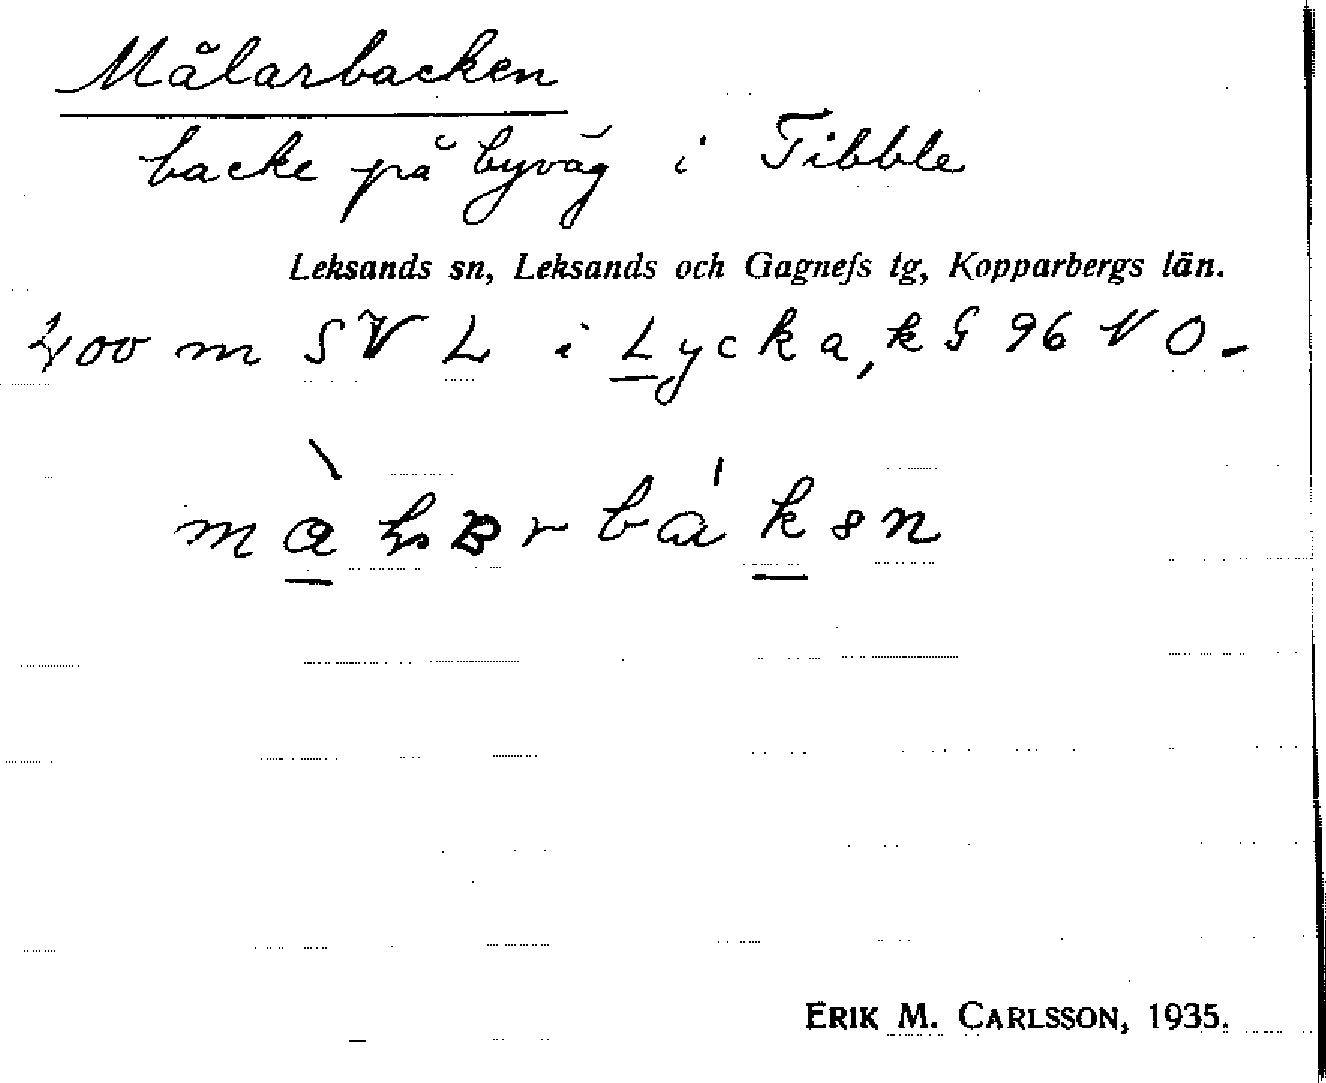 Målarbacken
backe på byväg i Tibble
Leksands sn, Leksands och Gagnefs tg, Kopparbergs län.
400 m SV L i Lycka, k G 96 NO.
ERIK M. CARLSSON, 1935.